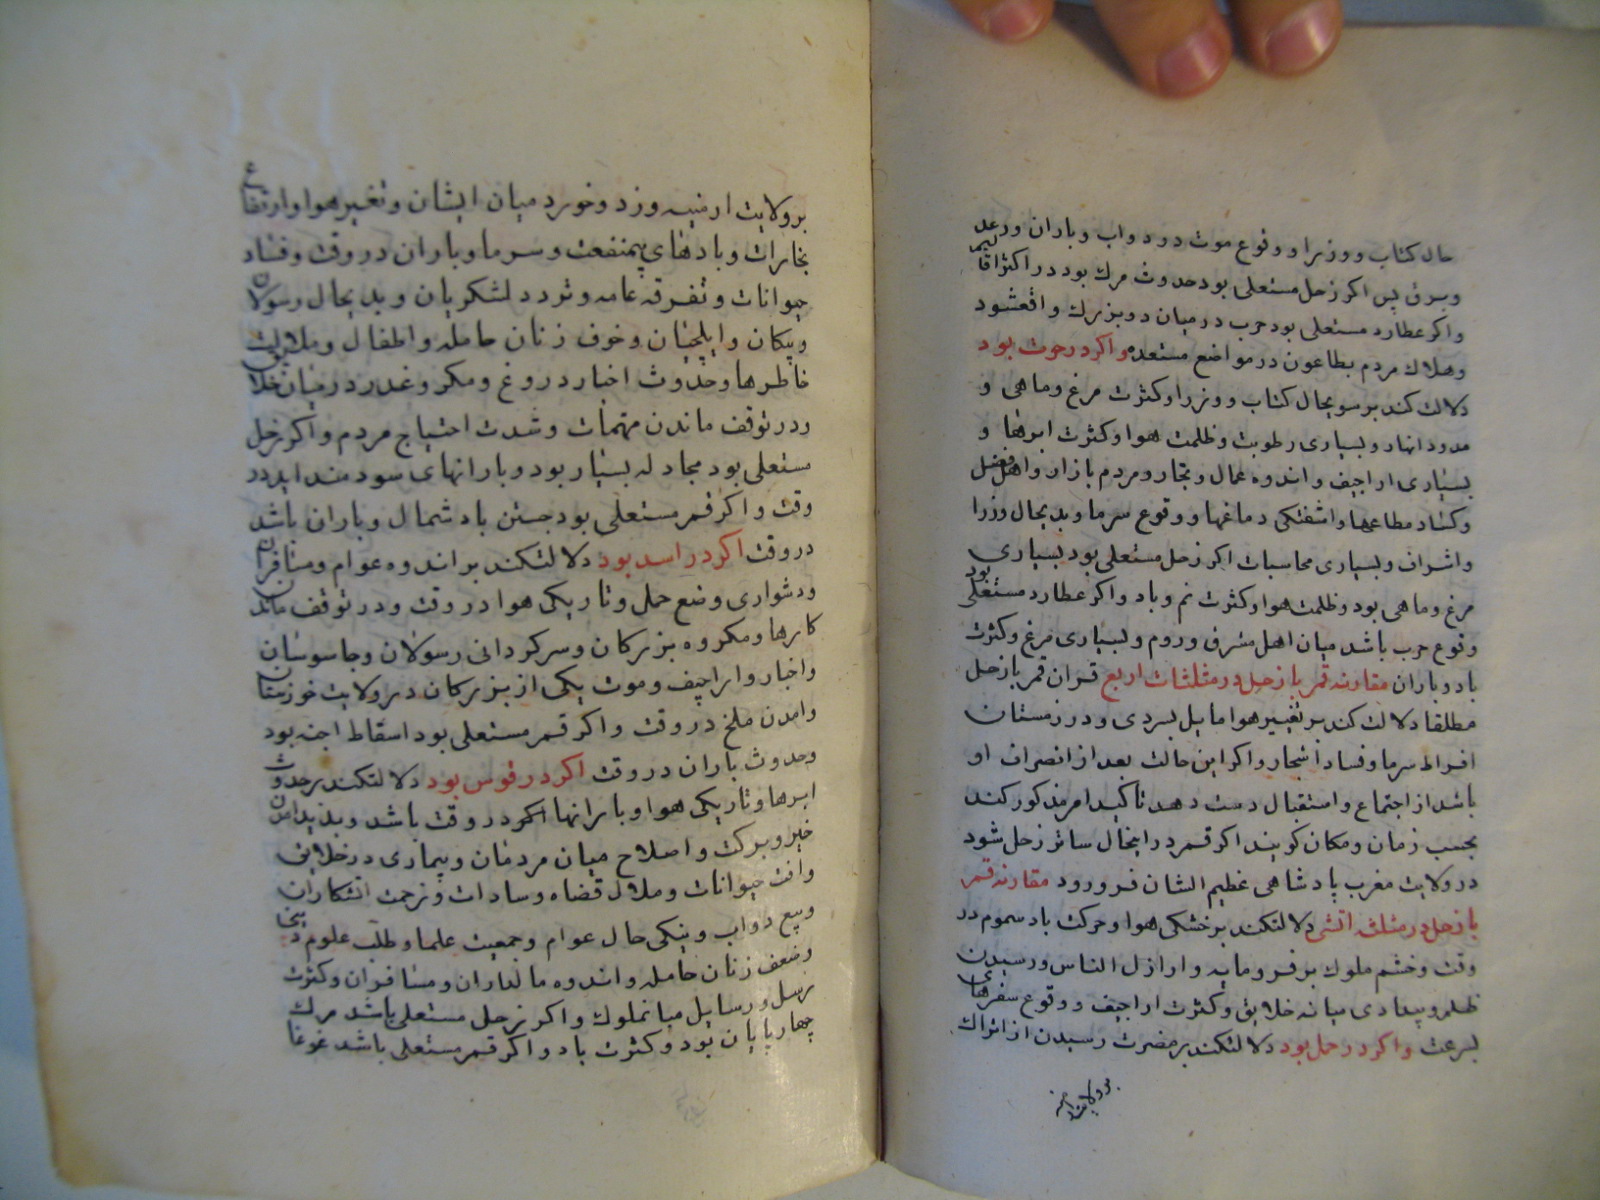 حال کتاب و وزرا و وقوع موت در دواب و باران و رعد
و برق پس اکر زحل مستعلی بود حدوث مرك بود در اکثر اقالیم
و اکر عطارد مستعلی بود حرب در میان دو بزرك واقع شود
و هلاك مردم بطاعون در مواضع مستعده و اکر در حوت بود
دلالت کند بر سو یحال کتاب و وزرا و کثرت مرغ و ماهی و
مدود انهار و بسیاری رطوبت و ظلمت هوا و کثرت ابرها و
بسیاری اراجیف و اندوه عمال و تجار و مردم بازار و اهل فضل
و کساد مطاعها و اشفتکی دماغها و وقوع سرما و بدیحال وزرا
و اشراف و بسیاری محاسبات اکر زحل مستعلی بود بسیاری
مرغ و ماهی بود و ظلمت هوا و کثرت نم و باد و اکر عطارد مستعلی بود
وقوع حرب باشد میان اهل مشرق و روم و بسیاری مرغ و کثرت
باد و باران مقارنه قمر باز حل در مثلثات اربع قران قمر باز حل
مطلقا دلالت کند بر تغییر هوا مایل بسردی و در زمستان
افراط سرما و فساد اشجار و اکر این حالت بعد از انصراف او
باشد از اجتماع و استقبال دست دهد تاکید امر مذکور کند
بحسب زمان و مکان کویند اکر قمر در اینحال ساتر زحل شود
در ولایت مغرب پادشاهی عظیم الشان فرو رود مقارنه قمر
باز حل در مثلثه اتشی دلالتکند بر خشکی هوا و حرکت باد سموم در
وقت و خشم ملوك بر فرومایه و ارازل الناس و رسیدن
ظلم و بیدادی میانه خلایق و کثرت اراجیف و وقوع سفرهای
بسرعت و اکر در حمل بود دلالتکند بر مضرت رسیدن از اتراك
بر ولایت ارمنیه
بر ولایت ارمنیه و زد و خورد میان ایشان و تغییر هوا و ارتفاع
بخارات و بادهای بیمنفعت و سرما و باران در وقت و فساد
حیوانات و تفرقه عامه و تردد لشکریان و بدیحال رسولان
و پیکان و ایلچیان و خوف زنان حامله و اطفال و ملالت
خاطرها و حدوث اخبار دروغ و مکر و غدر در میان خلایق
و در توقف ماندن مهمات و شدت احتیاج مردم و اکر زحل
مستعلی بود مجادله بسیار بود و بارانهای سودمند اید در
وقت و اکر قمر مستعلی بود جستن باد شمال و باران باشد
در وقت اکر در اسد بود دلالتکند بر اندوه عوام و مسافران
و دشواری وضع حمل و تاریکی هوا در وقت و در توقف ماندن
کارها و مکروه بزرکان و سرکردانی رسولان و جاسوسان
و اخبار و اراجیف و موت یکی از بزرکان در ولایت خوزستان
و امدن ملخ در وقت و اکر قمر مستعلی بود اسقاط اجنه بود
و حدوث باران در وقت اکر در قوس بود دلالتکند بر حدوث
ابرها و تاریکی هوا و بارانها اکر در وقت باشد و بدید امدن
خیر و برکت و اصلاح میان مردمان و بیماری در خلایق
و افت حیوانات و ملال قضاه و سادات و زحمت اتشکاران
و بیع دواب و نیکی حال عوام و جمعیت علما و طلب علوم دینی
و ضعف زنان حامله و اندوه مالداران و مسافران و کثرت
رسل و رسایل میانملوك و اکر زحل مستعلی باشد مرك
چهارپایان بود و کثرت باد و اکر قمر مستعلی باشد غوغا